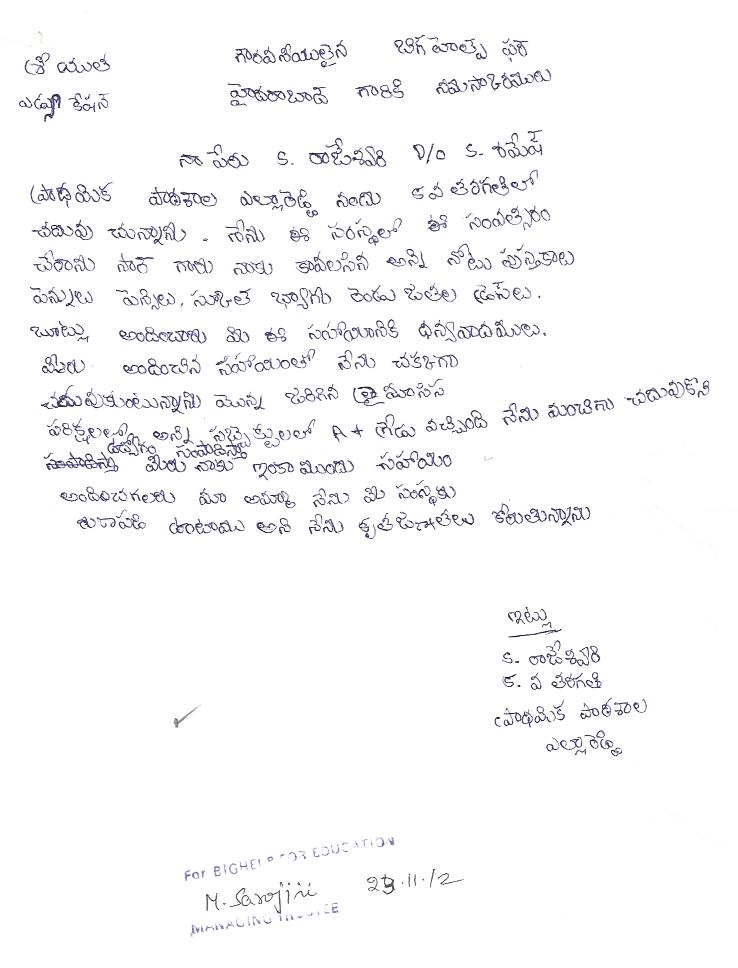 శ్రీ యుత గౌరవనీయులైన బిగ్ హెల్ప్ ఫర్
ఎడ్యుకేషన్ హైదరాబాద్ గారికి నమస్కారములు
నా పేరు S. రాజేశ్వరి D/O S. రమేష్
ప్రాథమిక పాఠశాల ఎల్లారెడ్డి నందు 5 వ తరగతిలో
చదువు చున్నాను. నేను ఈ సంస్థలో ఈ సంవత్సరం
చేరాను సార్ గారు నాకు కావలసిన అన్ని నోటు పుస్తకాలు
పెన్నులు పెన్సిలు, స్కూల్ బ్యాగు రెండు జతల డ్రెస్‌లు.
బూట్లు అందించారు మీ ఈ సహాయానికి ధన్యవాదములు.
మీరు అందించిన సహాయంతో నేను చక్కగా
చదువుకుంటున్నాను మొన్న జరిగిన త్రై మాసిస
పరిక్షలలో అన్ని సబ్జెక్టులలో A+ గ్రేడు వచ్చింది నేను మంచిగా చదువుకొని
ఉద్యోగం సంపాదిస్తా
మీరు నాకు ఇంకా ముందు సహాయం
అందించగలరు మా అమ్మా నేను మీ సంస్థకు
ఉంటాము అని నేను కృతజ్ఞతలు కోరుతున్నాను
ఇట్లు
S. రాజేశ్వరి
5. వ తరగతి
ప్రాథమిక పాఠశాల
ఎల్లారెడ్డి
For BIGHELP FOR EDUCATION
M. Sarojini 23.11.12
MANAGING TRUSTEE